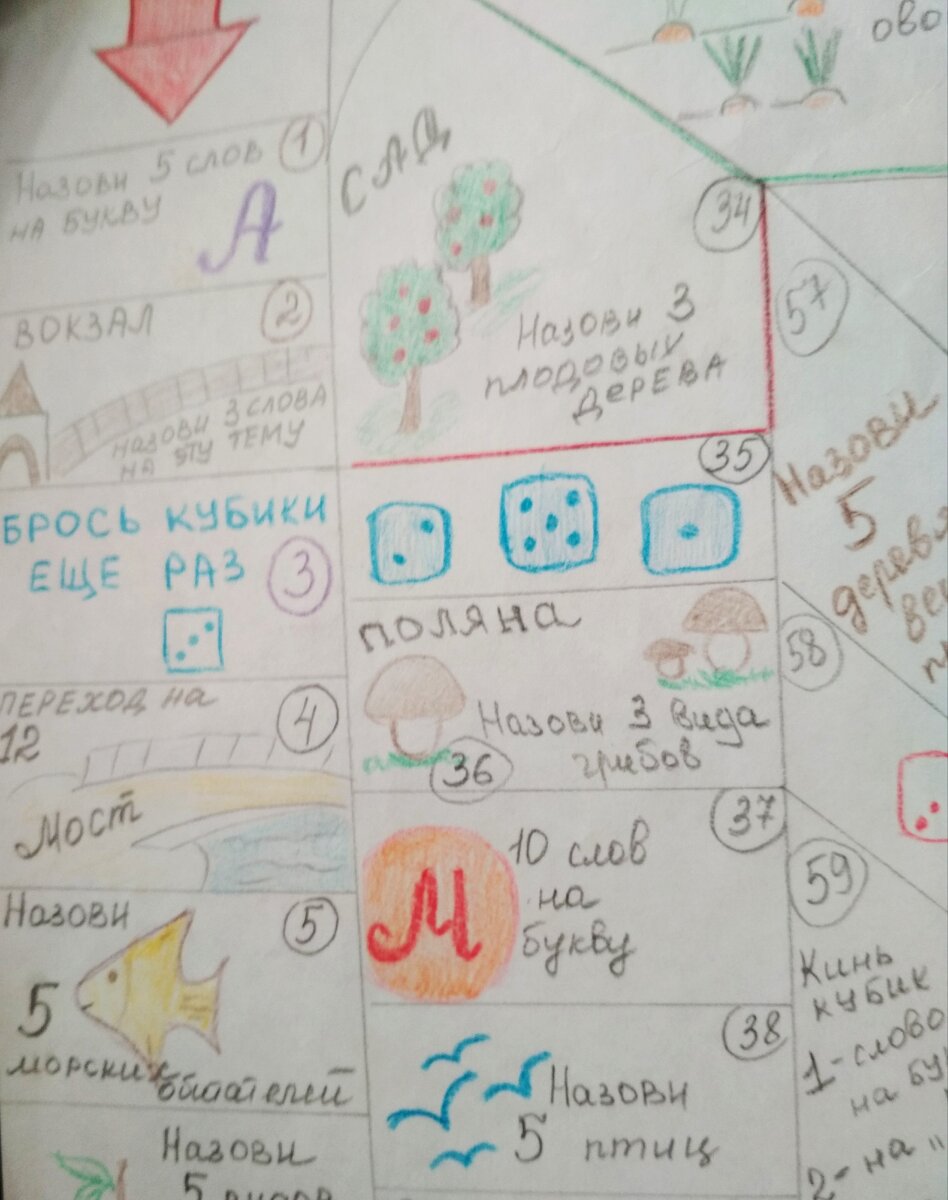 1
Назови 5 слов
на букву
А
2
ВОКЗАЛ
назови 3 слова
на эту тему
БРОСЬ КУБИКИ
ЕЩЕ РАЗ
3
ПЕРЕХОД на
12
4
Мост
Назови
5
5
морских
обитателей
Назови
5
САД
34
Назови 3
плодовых
дерева
35
ПОЛЯНА
Назови 3 вида
грибов
36
37
М
10 слов
на
букву
38
Назови
5 птиц
ово
57
Назови
5
58
59
Кинь
кубик
1-слово
на бу
2-на "